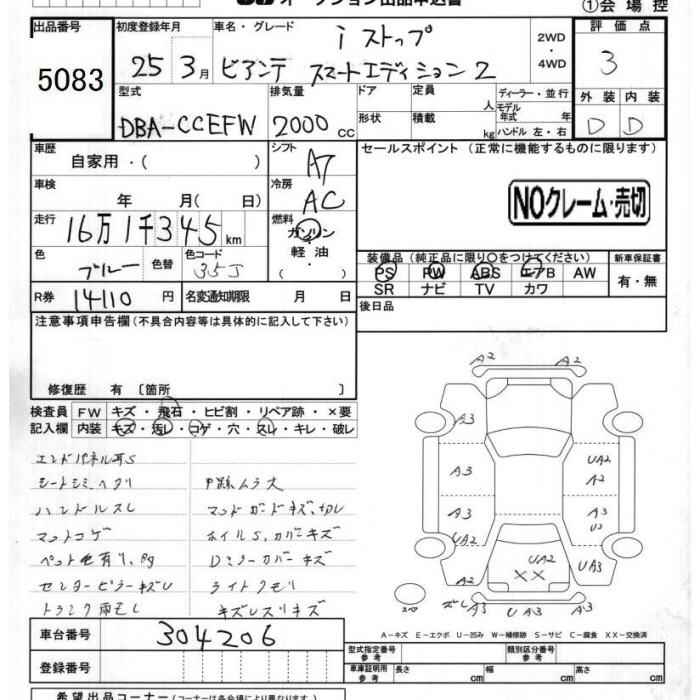 オークション出品申込書
①会場控
出品番号
5083
初度登録年月
25 3月
車名・グレード
i ストップ
ビアンテ スマートエディション2
2WD
・
4WD
評価点
3
型式
DBA-CCEFW
排気量
2000cc
ドア
定員 人
形状
積載 kg
ディーラー・並行
モデル年式 年
ハンドル 左・右
外装 内装
D D
車歴
自家用・( )
シフト
AT
セールスポイント(正常に機能するものに限ります)
車検
年 月( 日)
冷房
AC
NOクレーム・売切
走行
16万1千345km
燃料
ガソリン
軽油
・( )
色
ブルー
色替
色コード
35J
装備品(純正品に限り○をつけてください)
PS PW ABS エアB AW
SR ナビ TV カワ
新車保証書
有・無
R券 14110円
名変通知期限 月 日
後日品
注意事項申告欄(不具合内容等は具体的に記入して下さい)
修復歴 有〔箇所 〕
検査員記入欄
FW キズ・飛石・ヒビ割・リペア跡・×要
内装 キズ・汚レ・コゲ・穴・スレ・キレ・破レ
エンドパネル耳S
シートシミ、ヘタリ
ハンドルスレ
マットコゲ
ペット毛有り
センターピラーキズ
トランク
マッドガードキズ
ホイルS、カバーキズ
Dミラーカバーキズ
ライトクモリ
A2 A2
A3
A3 UA2
A2
A3 A3
UA2
XX UA3
A2 A3
スペ UA3
A-キズ E-エクボ U-凹み W-補修跡 S-サビ C-腐食 XX-交換済
車台番号
304206
登録番号
型式指定番号 参考
類別区分番号 参考
車庫証明用 参考
長さ cm 幅 cm 高さ cm
希望出品コーナー(コーナーは各会場により異なります)